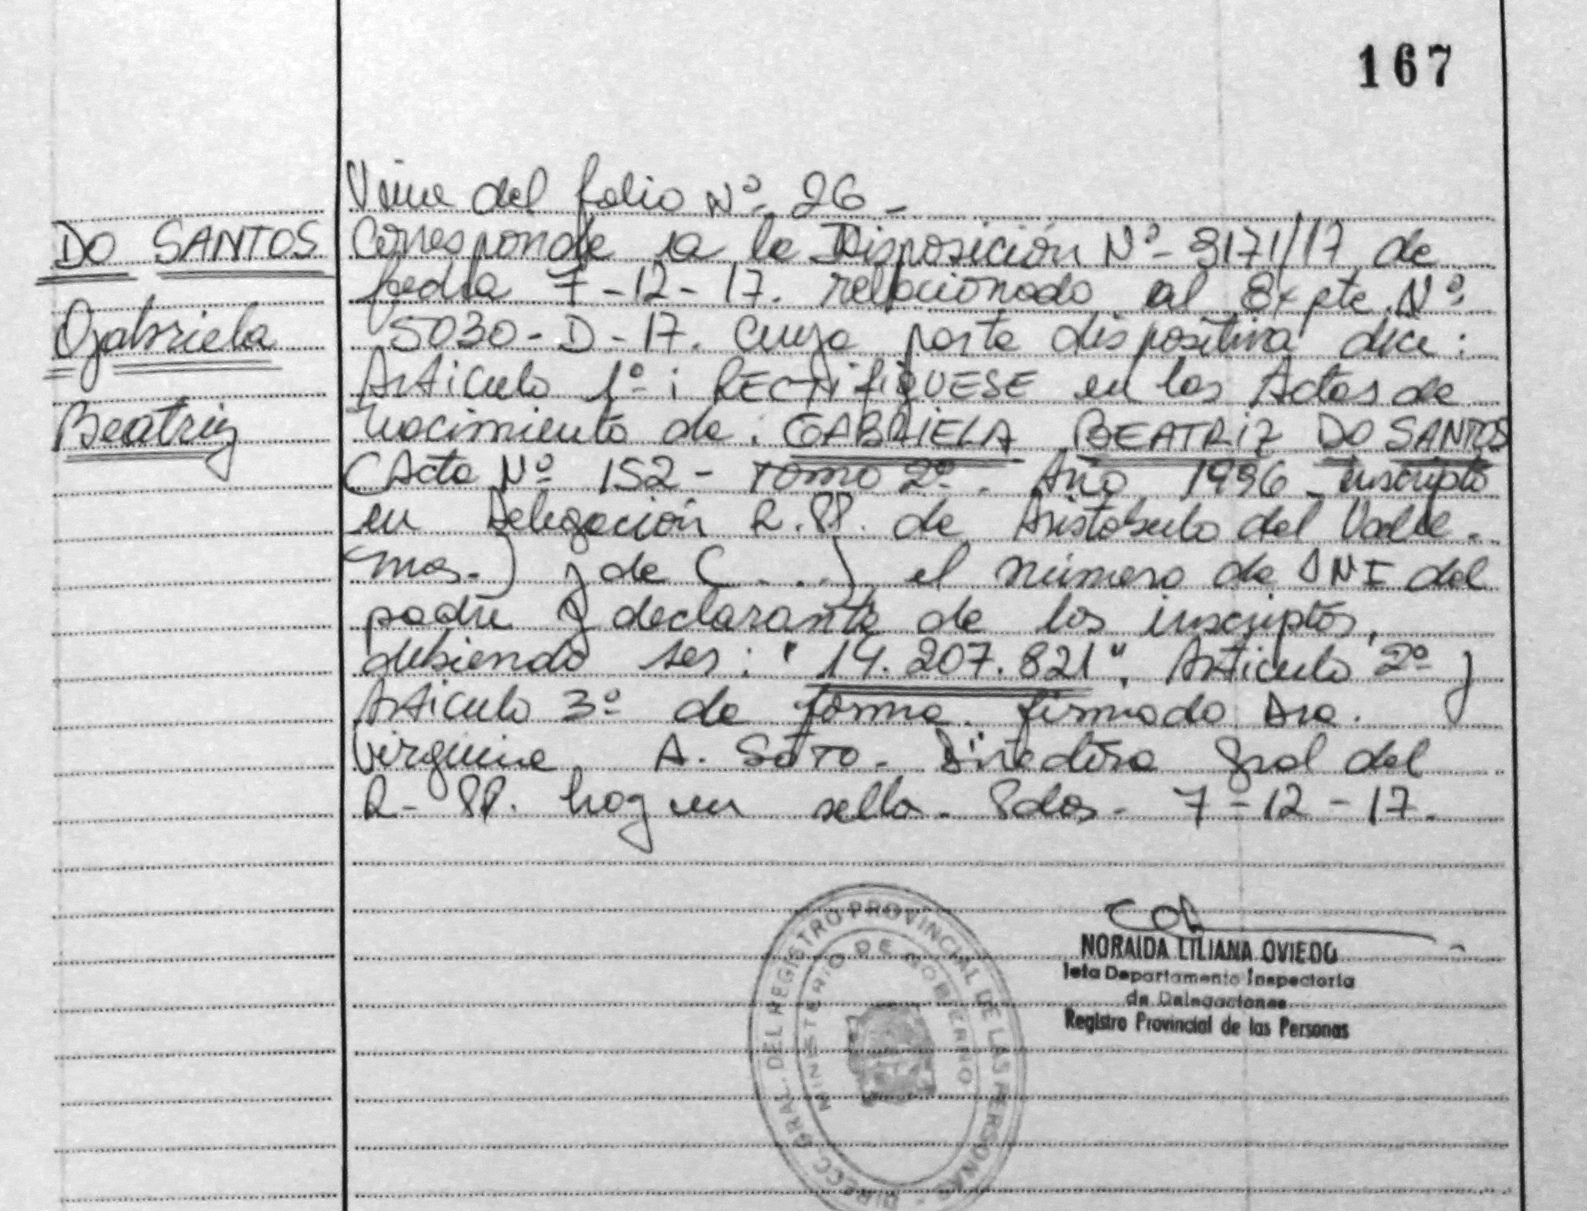 167
Viene del folio Nº 26 -
DO SANTOS
Gabriela
Beatriz
Corresponde a la Disposición Nº - 3171/17 de
fecha 7-12-17. relacionado al Expte Nº
5030-D-17. Cuya parte dispositiva dice:
Artículo 1º: RECTIFIQUESE en las Actas de
nacimiento de: GABRIELA BEATRIZ DO SANTOS
(Acta Nº 152 - Tomo 2º. Año 1996 inscripto
en Delegación R.PP. de Aristóbulo del Valle.
Mnes.) y de (...) el número de DNI del
padre y declarante de los inscriptos,
debiendo ser: "14.207.821". Artículo 2º y
Artículo 3º de forma. firmado Dra.
Virginia A. Soto. Directora Gral del
R-PP. hay un sello. Pdas - 7-12-17.
NORAIDA LILIANA OVIEDO
Jefa Departamento Inspectoria
de Delegaciones
Registro Provincial de las Personas
DIRECC. GRAL. DEL REGISTRO PROVINCIAL DE LAS PERSONAS -
MINISTERIO DE GOBIERNO